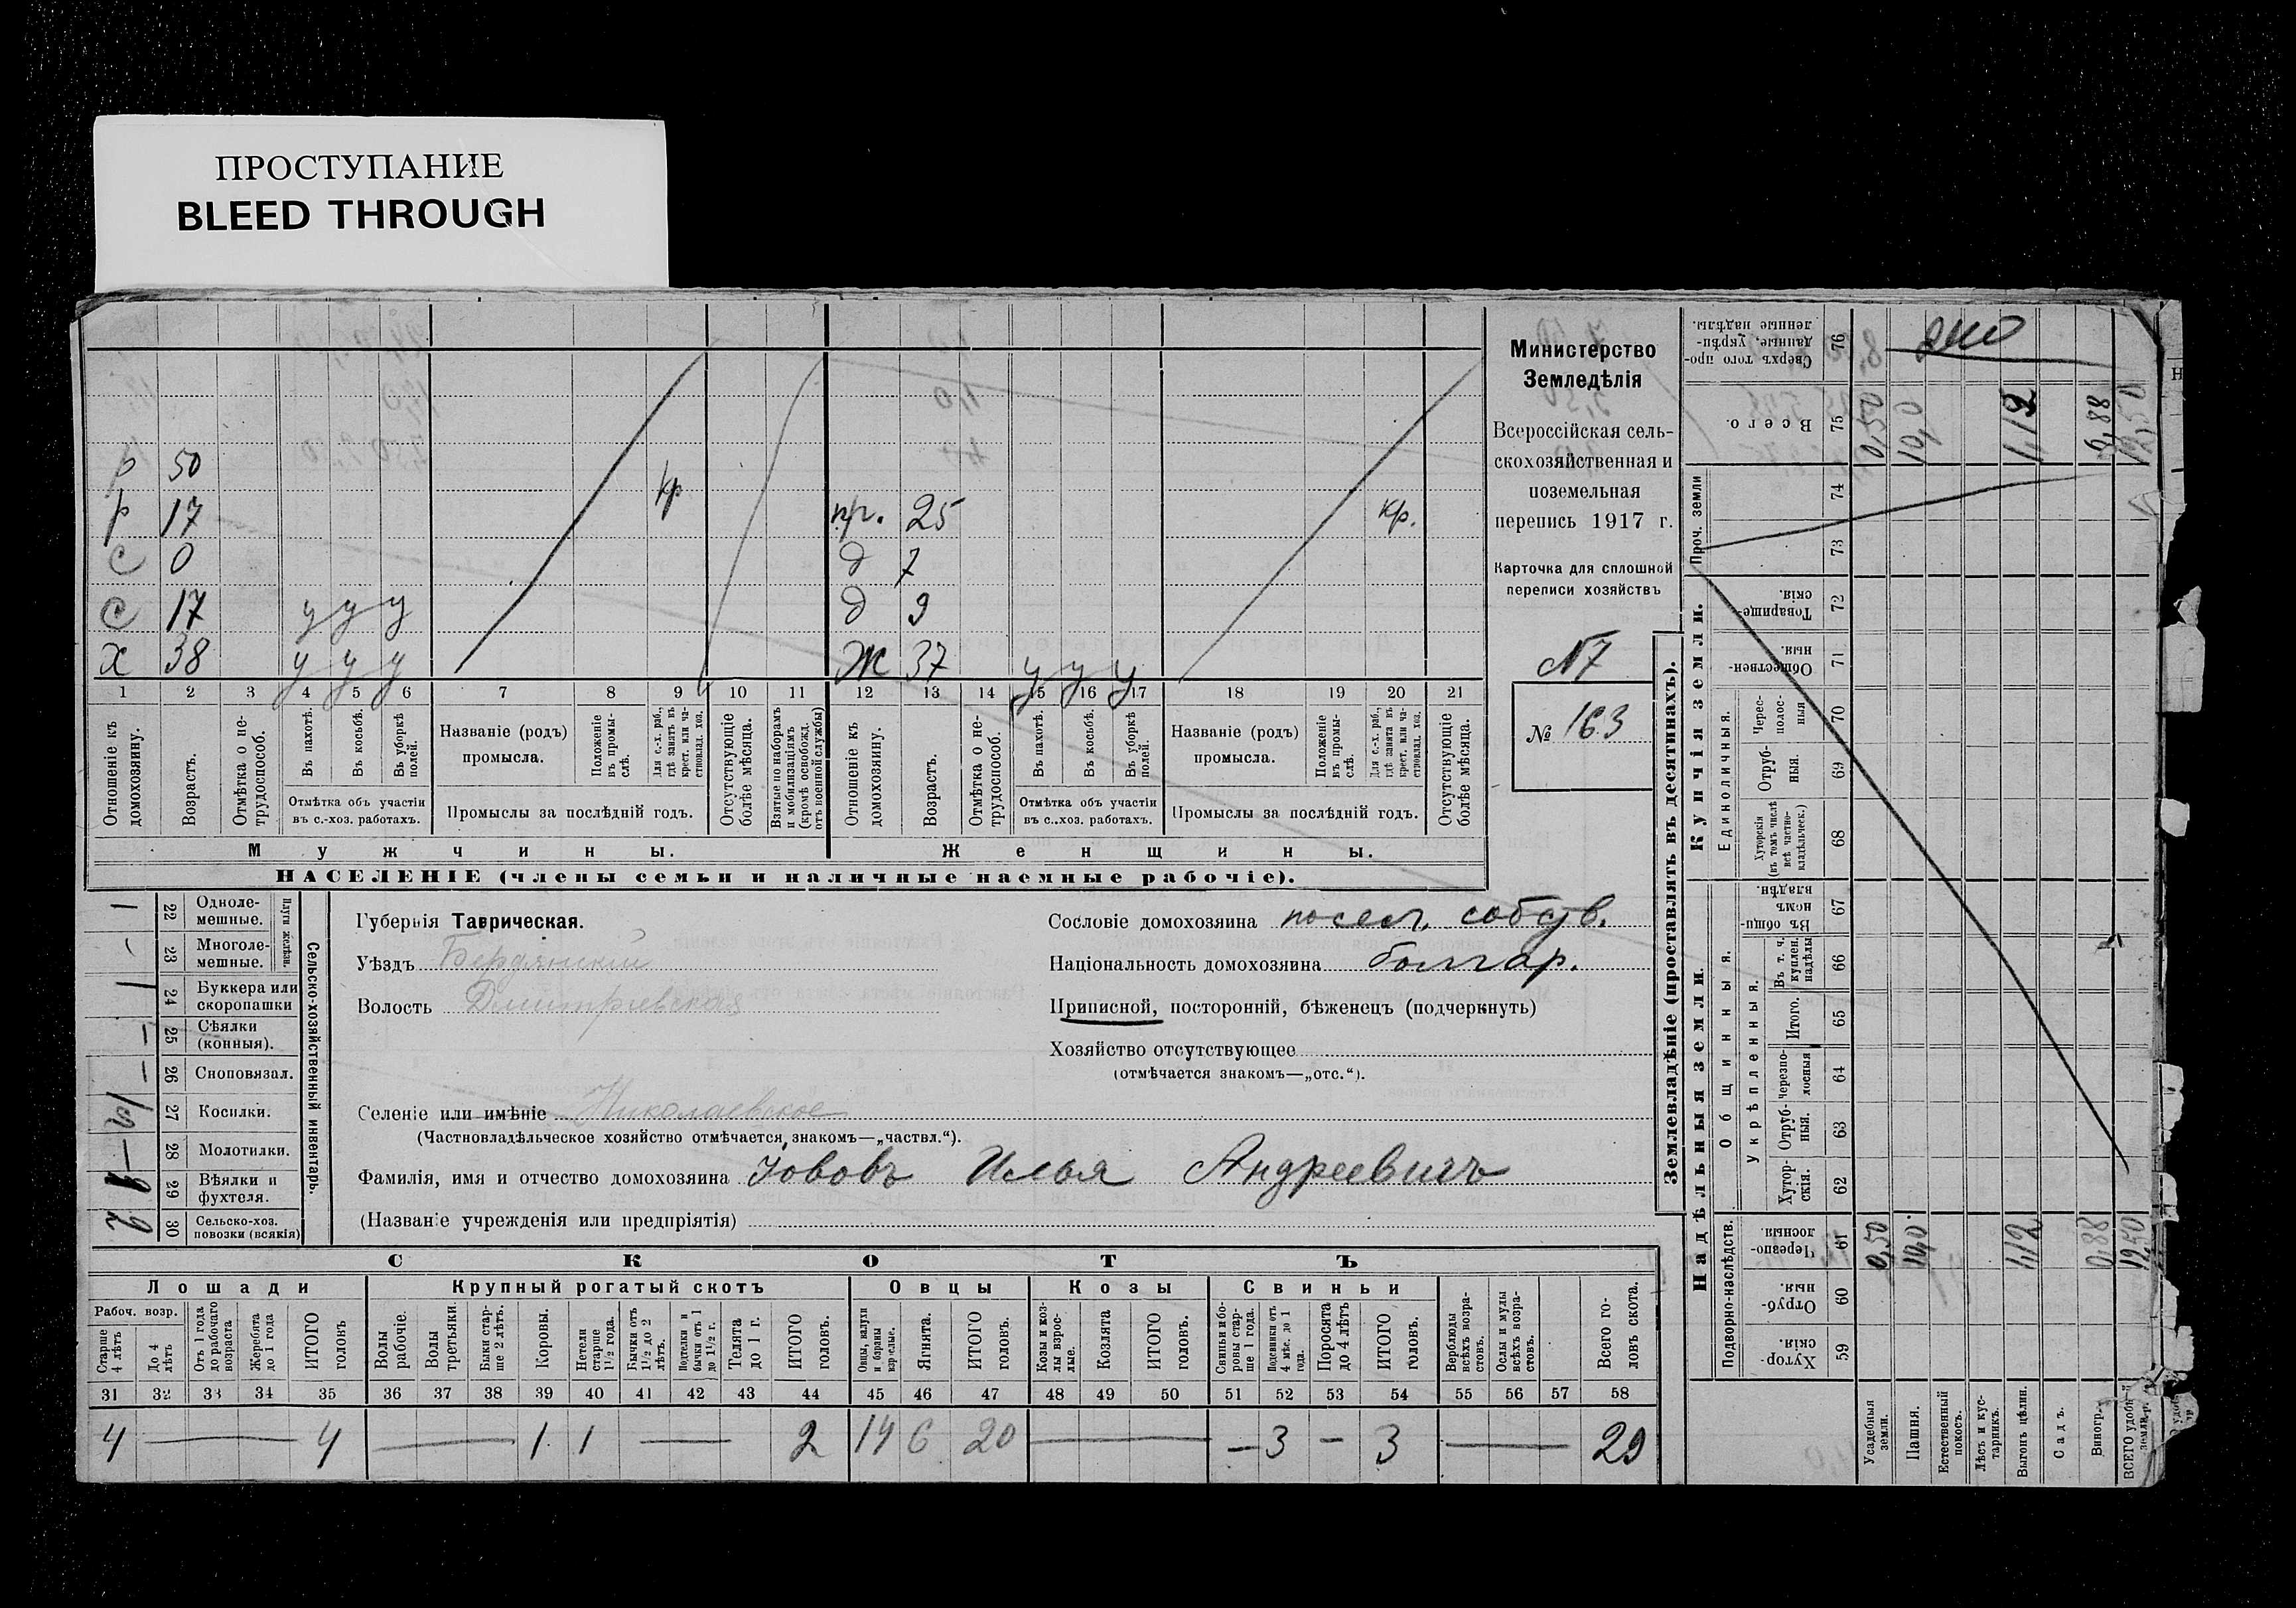 ПРОСТУПАНИЕ
BLEED THROUGH
р 50 кр
р 17 пр. 25 кр.
с 0 д 7
с 17 у у у д 9
х 38 у у у Ж 37 у у у
1 2 3 4 5 6 7 8 9 10 11 12 13 14 15 16 17 18 19 20 21
Отношеніе къ домохозяину.
Возрастъ.
Отмѣтка о не-трудоспособ.
Въ пахотѣ.
Въ косьбѣ.
Въ уборкѣ полей.
Отмѣтка объ участіи
въ с.-хоз. работахъ.
Названіе (родъ)
промысла.
Положеніе въ промы-слѣ.
Для с.-х. раб., гдѣ занятъ въ крест. или ча-стновлад. хоз.
Промыслы за послѣдній годъ.
Отсутствующіе болѣе мѣсяца.
Взятые по наборамъ и мобилизаціямъ (кромѣ освобожд. отъ военной службы)
Отношеніе къ домохозяину.
Возрастъ.
Отмѣтка о не-трудоспособ.
Въ пахотѣ.
Въ косьбѣ.
Въ уборкѣ полей.
Отмѣтка объ участіи
въ с.-хоз. работахъ.
Названіе (родъ)
промысла.
Положеніе въ промы-слѣ.
Для с.-х. раб., гдѣ занята въ крест. или ча-стновлад. хоз.
Промыслы за послѣдній годъ.
Отсутствующіе болѣе мѣсяца.
Мужчины. Женщины.
НАСЕЛЕНІЕ (члены семьи и наличные наемные рабочіе).
Министерство
Земледѣлія
Всероссійская сель-
скохозяйственная и
поземельная
перепись 1917 г.
Карточка для сплошной
переписи хозяйствъ
N7
№ 163
1 22 Одноле-мешные.
- 23 Многоле-мешные.
Плуги желѣзн.
1 24 Буккера или скоропашки
- 25 Сѣялки (конныя).
- 26 Сноповязал.
1/2 27 Косилки.
- 28 Молотилки.
1 29 Вѣялки и фухтеля.
2 30 Сельско-хоз. повозки (всякія)
Сельско-хозяйственный инвентарь.
Губернія Таврическая.
Уѣздъ Бердянскій
Волость Дмитріевская
Селеніе или имѣніе Николаевское
(Частновладѣльческое хозяйство отмѣчается знакомъ—„частвл.“).
Фамилія, имя и отчество домохозяина Іововъ Илья Андреевичъ
(Названіе учрежденія или предпріятія)
Сословіе домохозяина посел. собств.
Національность домохозяина болгар.
Приписной, посторонній, бѣженецъ (подчеркнуть)
Хозяйство отсутствующее
(отмѣчается знакомъ—„отс.“).
СКОТЪ
Лошади Крупный рогатый скотъ Овцы Козы Свиньи
Рабоч. возр.
Старше 4 лѣтъ
До 4 лѣтъ
Отъ 1 года до рабочаго возраста
Жеребята до 1 года
ИТОГО головъ
Волы рабочіе.
Волы третьяки.
Быки стар-ше 2 лѣтъ.
Коровы.
Нетели старше 1½ года.
Бычки отъ 1½ до 2 лѣтъ.
Подтелки и бычки отъ 1 до 1½ г.
Телята до 1 г.
ИТОГО головъ.
Овцы, валухи и бараны взрослые.
Ягнята.
ИТОГО головъ.
Козы и коз-лы взрос-лые.
Козлята
ИТОГО головъ.
Свиньи и бо-ровы стар-ше 1 года.
Подсвинки отъ 4 мѣс. до 1 года.
Поросята до 4 лѣтъ
ИТОГО головъ.
Верблюды всѣхъ возра-стовъ.
Ослы и мулы всѣхъ возра-стовъ.
Всего го-ловъ скота.
31 32 33 34 35 36 37 38 39 40 41 42 43 44 45 46 47 48 49 50 51 52 53 54 55 56 57 58
4 — 4 — 1 1 — 2 14 6 20 — - 3 - 3 — 29
Землевладѣніе (проставлять въ десятинахъ).
Надѣльныя земли. Купчія земли. Проч. земли
Подворно-наслѣдств.
Общинныя.
Укрѣпленныя.
Единоличныя.
Хутор-скія. 59
Отруб-ныя. 60
Черезпо-лосныя. 61
Хутор-скія. 62
Отруб-ныя. 63
черезпо-лосныя 64
Итого. 65
Въ т. ч. куплен. надѣлы 66
Въ общи-номъ владѣн. 67
Хуторскія (въ томъ числѣ всѣ частно-владѣльческ.) 68
Отруб-ныя. 69
Черес-полос-ныя 70
Обществен-ныя. 71
Товарище-скія. 72
73
74
Всего. 75
Сверхъ того про-данные, укрѣп-ленные надѣлы. 76
Усадебныя земли. 0,50 0,50
Пашня. 10,0 10,0
Естественный покосъ.
Лѣсъ и кус-тарникъ.
Выгонъ цѣлин. 1,12 1,12
Садъ.
Виногр. 0,88 0,88
ВСЕГО удобн. земли 12,50 12,50